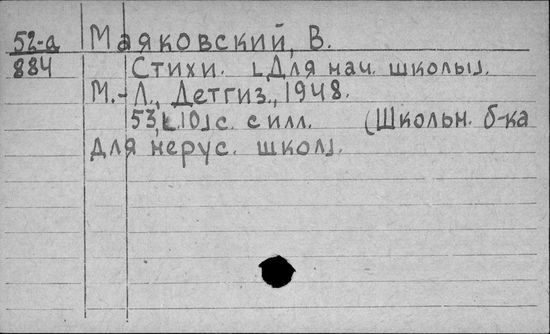 52-а Маяковский, В.
884 Стихи. [Для нач. школы].
М.-Л., Детгиз., 1948.
53, [10] с. с илл. (Школьн. б-ка
для нерус. школ).